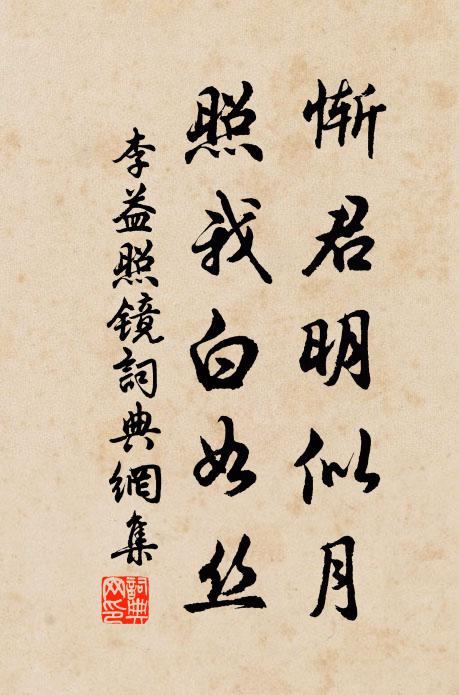 慚君明似月
照我白如丝
李益照镜詞典網集
詞典网印